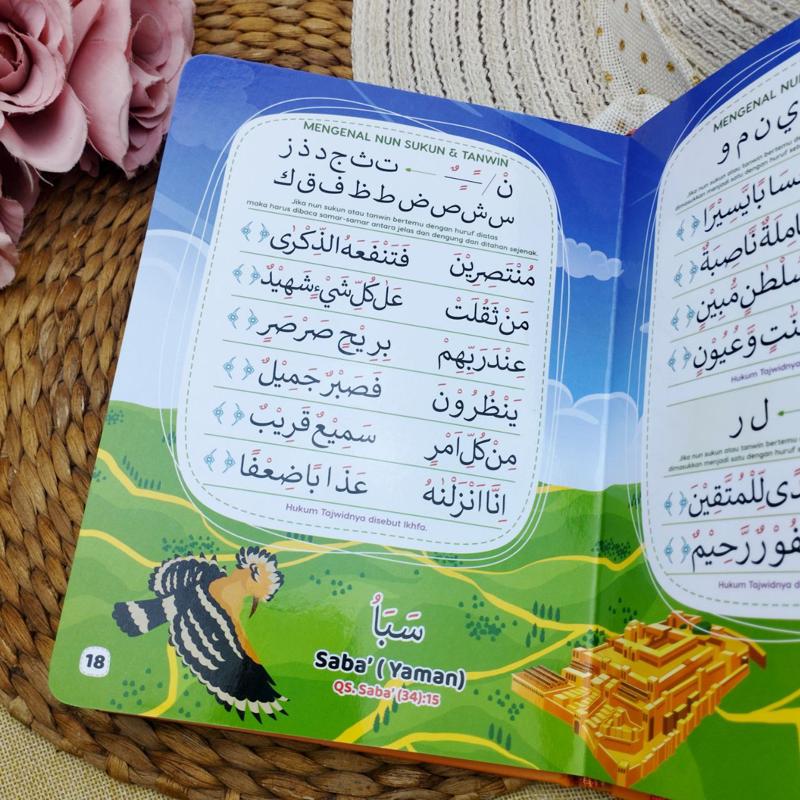 MENGENAL NUN SUKUN & TANWIN
نْ / ـًـٍـٌ ← ت ث ج د ذ ز
س ش ص ض ط ظ ف ق ك
Jika nun sukun atau tanwin bertemu dengan huruf diatas
maka harus dibaca samar-samar antara jelas dan dengung dan ditahan sejenak.
مُنْتَصِرِيْنَ فَتَنْفَعَهُ الذِّكْرٰى
مَنْ ثَقُلَتْ عَلٰى كُلِّ شَيْءٍ شَهِيْدٌ
عِنْدَ رَبِّهِمْ بِرِيْحٍ صَرْصَرٍ
يَنْظُرُوْنَ فَصَبْرٌ جَمِيْلٌ
مِنْ كُلِّ اَمْرٍ سَمِيْعٌ قَرِيْبٌ
اِنَّا اَنْزَلْنٰهُ عَذَابًا ضِعْفًا
Hukum Tajwidnya disebut Ikhfa.
سَبَأُ
Saba' (Yaman)
QS. Saba' (34):15
18
MENGENAL NUN
ي ن م و
Jika nun sukun atau tanwin bertemu
dimasukkan menjadi satu dengan huruf
حِسَابًا يَسِيْرًا
عَامِلَةٌ نَّاصِبَةٌ
سُلْطٰنٍ مُّبِيْنٍ
وَّعُيُوْنٍ
Hukum Tajwidnya
ل ر
Jika nun sukun atau tanwin bertemu
dimasukkan menjadi satu dengan huruf
هُدًى لِّلْمُتَّقِيْنَ
غَفُوْرٌ رَّحِيْمٌ
Hukum Tajwidnya